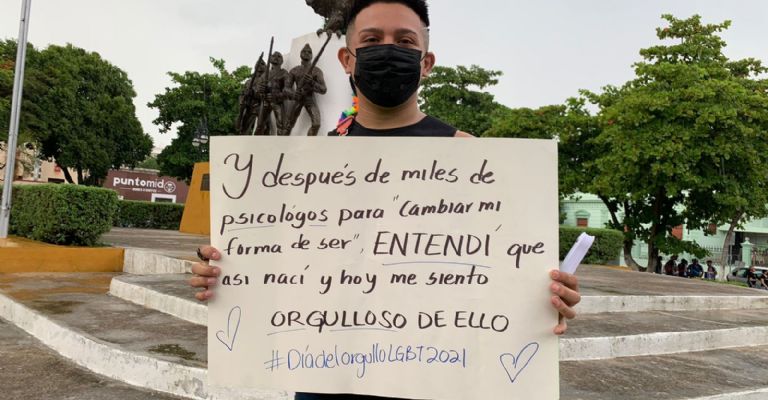 puntomid
Y después de miles de
psicológos para "Cambiar mi
forma de ser", ENTENDÍ que
asi nací y hoy me siento
ORGULLOSO DE ELLO
#DíadelorgulloLGBT2021